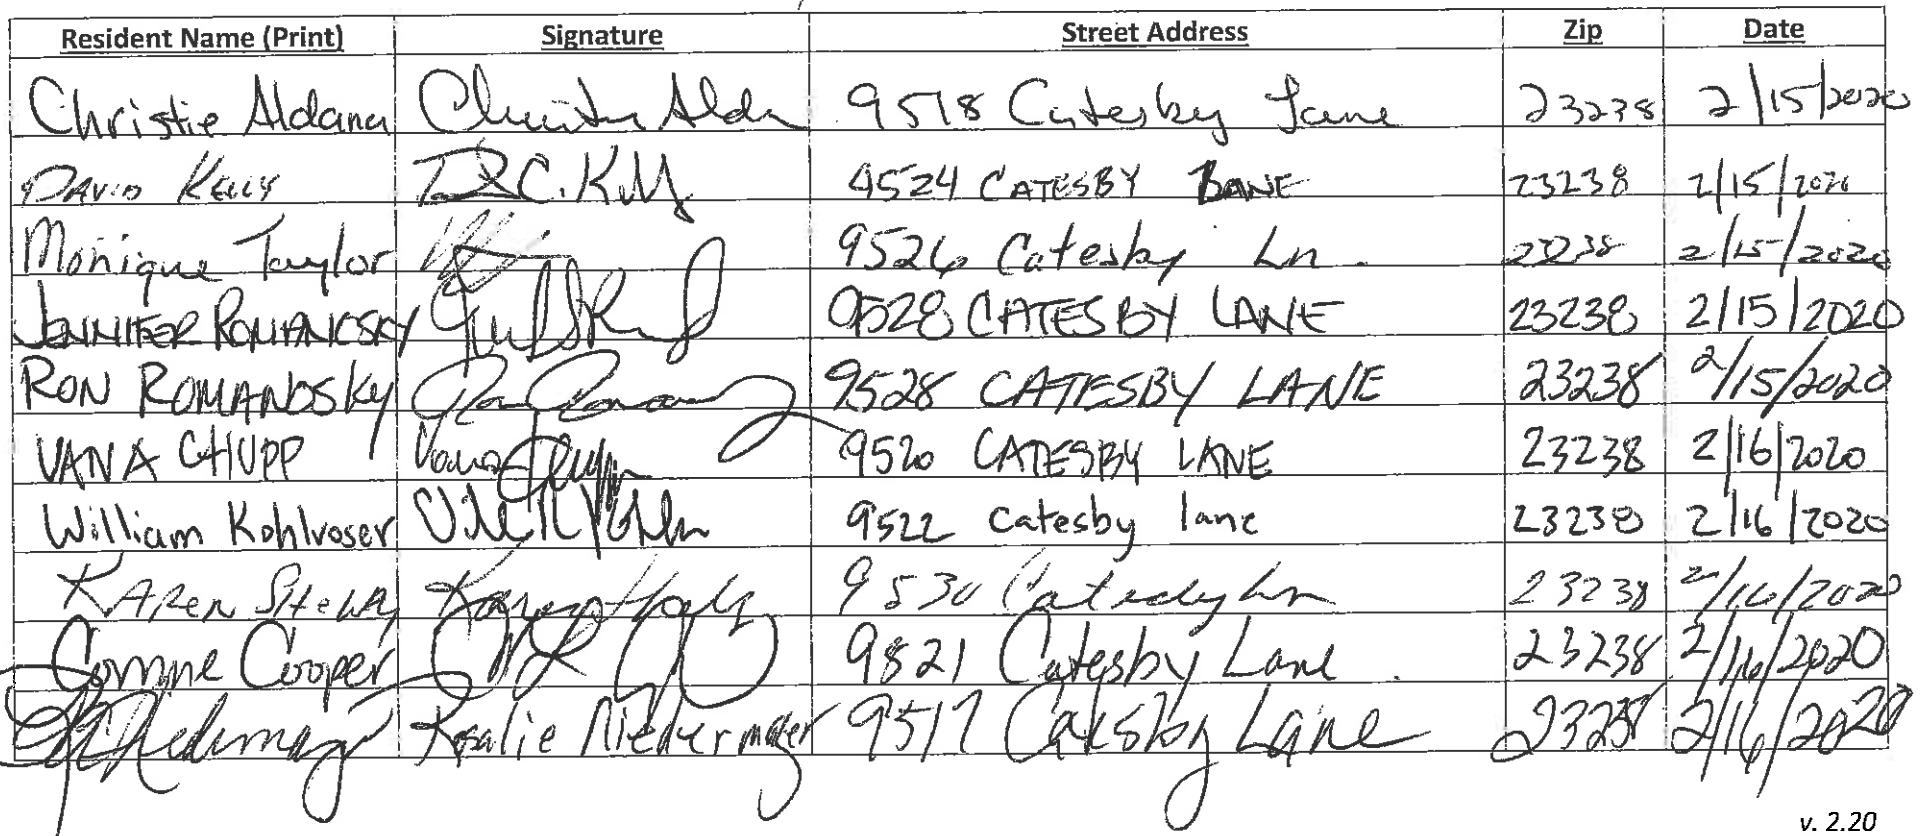 Resident Name (Print) Signature Street Address Zip Date
Christie Aldana 9518 Catesby Lane 23238 2/15/2020
DAVID KELLY D.C. Kelly 9524 CATESBY LANE 23238 2/15/2020
Monique Taylor 9526 Catesby Ln. 23238 2/15/2020
JENNIFER ROMANOSKY 9528 CATESBY LANE 23238 2/15/2020
RON ROMANOSKY 9528 CATESBY LANE 23238 2/15/2020
VANA CHUPP Vana Chupp 9520 CATESBY LANE 23238 2/16/2020
William Kohlvoser 9522 Catesby lane 23238 2/16/2020
KAREN 9530 Catesby Ln 23238 2/16/2020
Corrine Cooper 9521 Catesby Lane 23238 2/16/2020
Rosalie Niedermayer 9517 Catesby Lane 23238 2/16/2020
v. 2.20